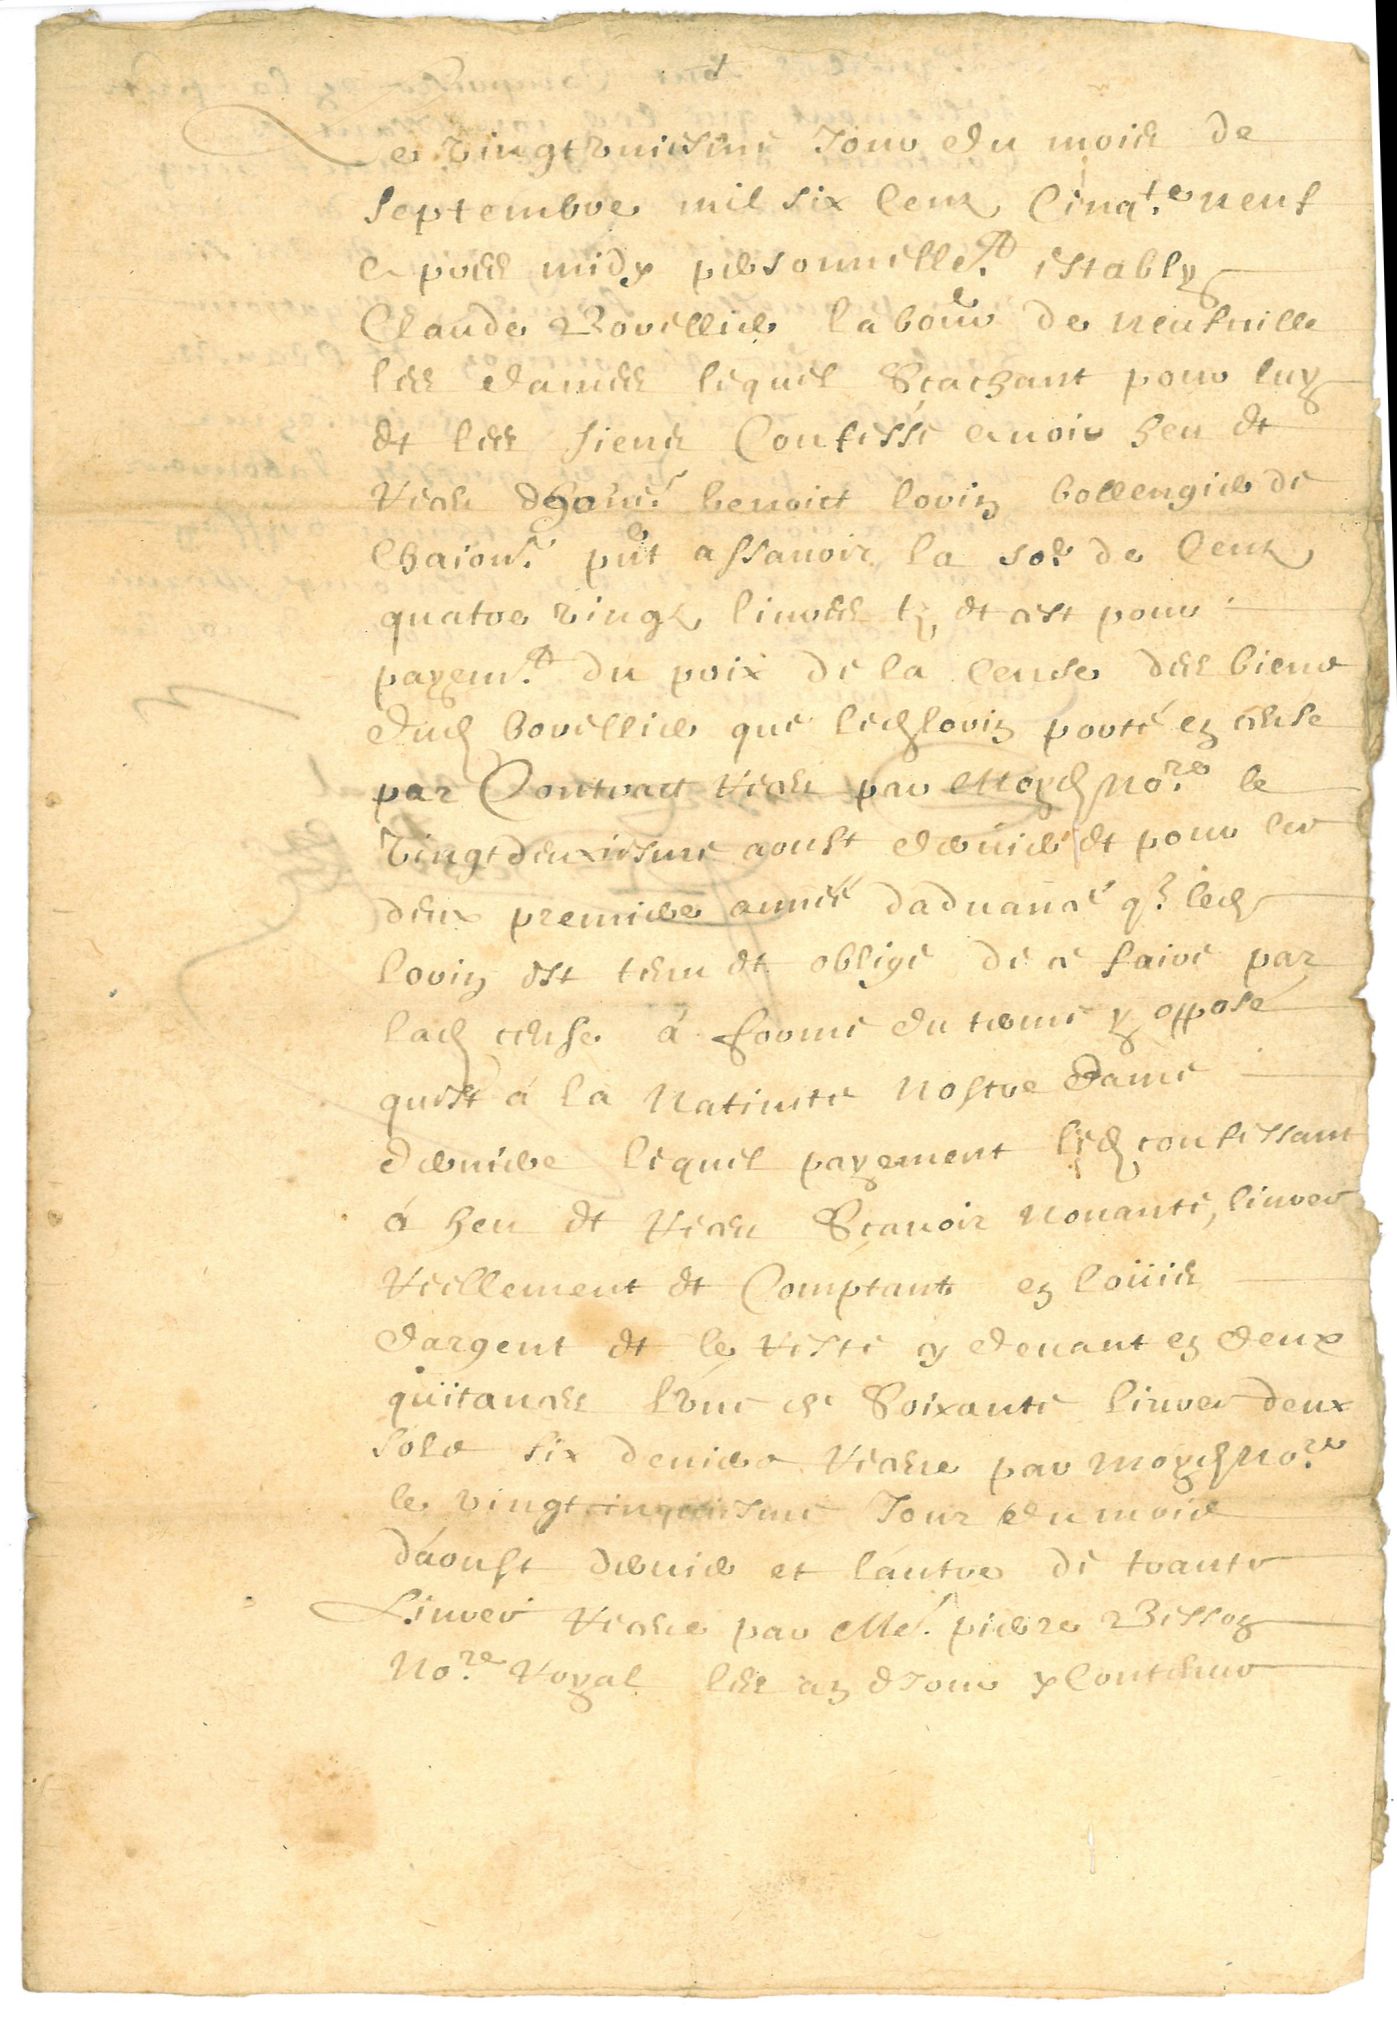 Le vingt vuictiesme Jour du mois de
septembre mil six Centz Cinqte neuf
apres midy personnellet estably
Claude Bouellier labour de neufuille
les dames lequel Scachant pour luy
et les siens Confesse auoir heu et
Receu dhoner benoict louis bollengier de
Chaions pnt assauoir la some de Centz
quatre vingtz liures tz et cest pour
payemt du prix de la Cense des biens
dud bouellier que led louis porte en cense
par Contract Receu par Moyd Nore le
Vingt deuxiesme aoust dernier et pour les
deux premieres annees daduance q led
louis est tenu et oblige de ce faire par
lad cense à forme du terme y apposé
quest á la Natiuite Nostre Dame
derniere lequel payement led confessant
á heu et Receu Scauoir Nonante, liures
Reellement et Comptant en loüis
dargent et le reste cy deuant en deux
quitances lvne de Soixante liures deux
solz six deniers Receue par moyd Nore
le vingt cinquiesme Jour du mois
dáoust dernier et láutre de trante
Liures Receue par Me pierre Bisson
Nore Royal les an et Jour y Contenus